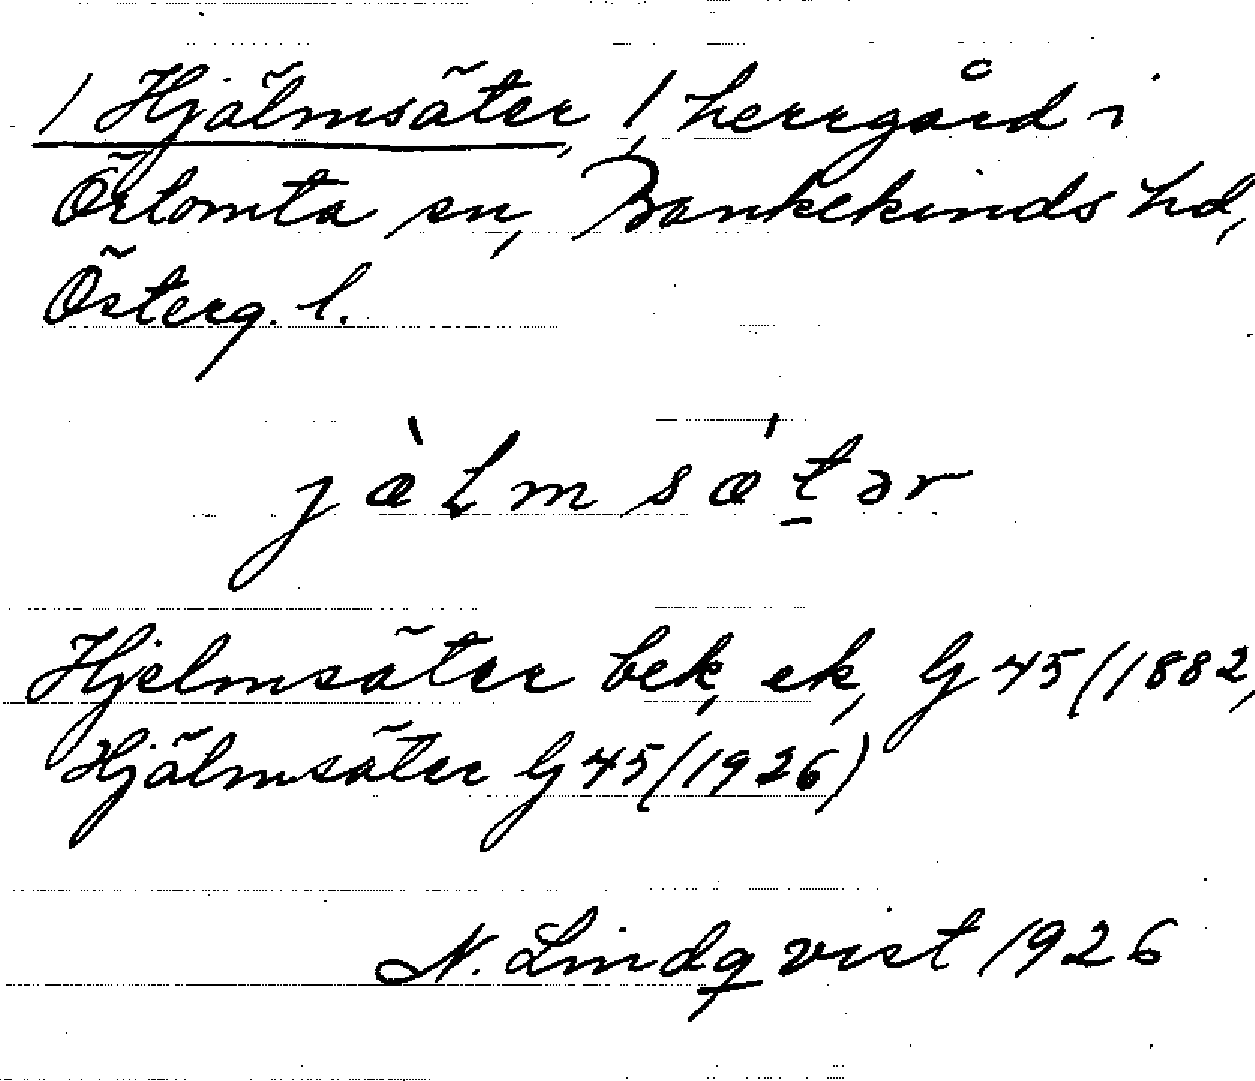 / Hjälmsäter, /, herrgård i
Örtomta sn, Bankekinds hd,
Österg. l.
jæ̀lmsæ´t̠ər
Hjelmsäter bek, ek, G 45 (1882,
Hjälmsäter G 45 (1926)
N. Lindqvist 1926